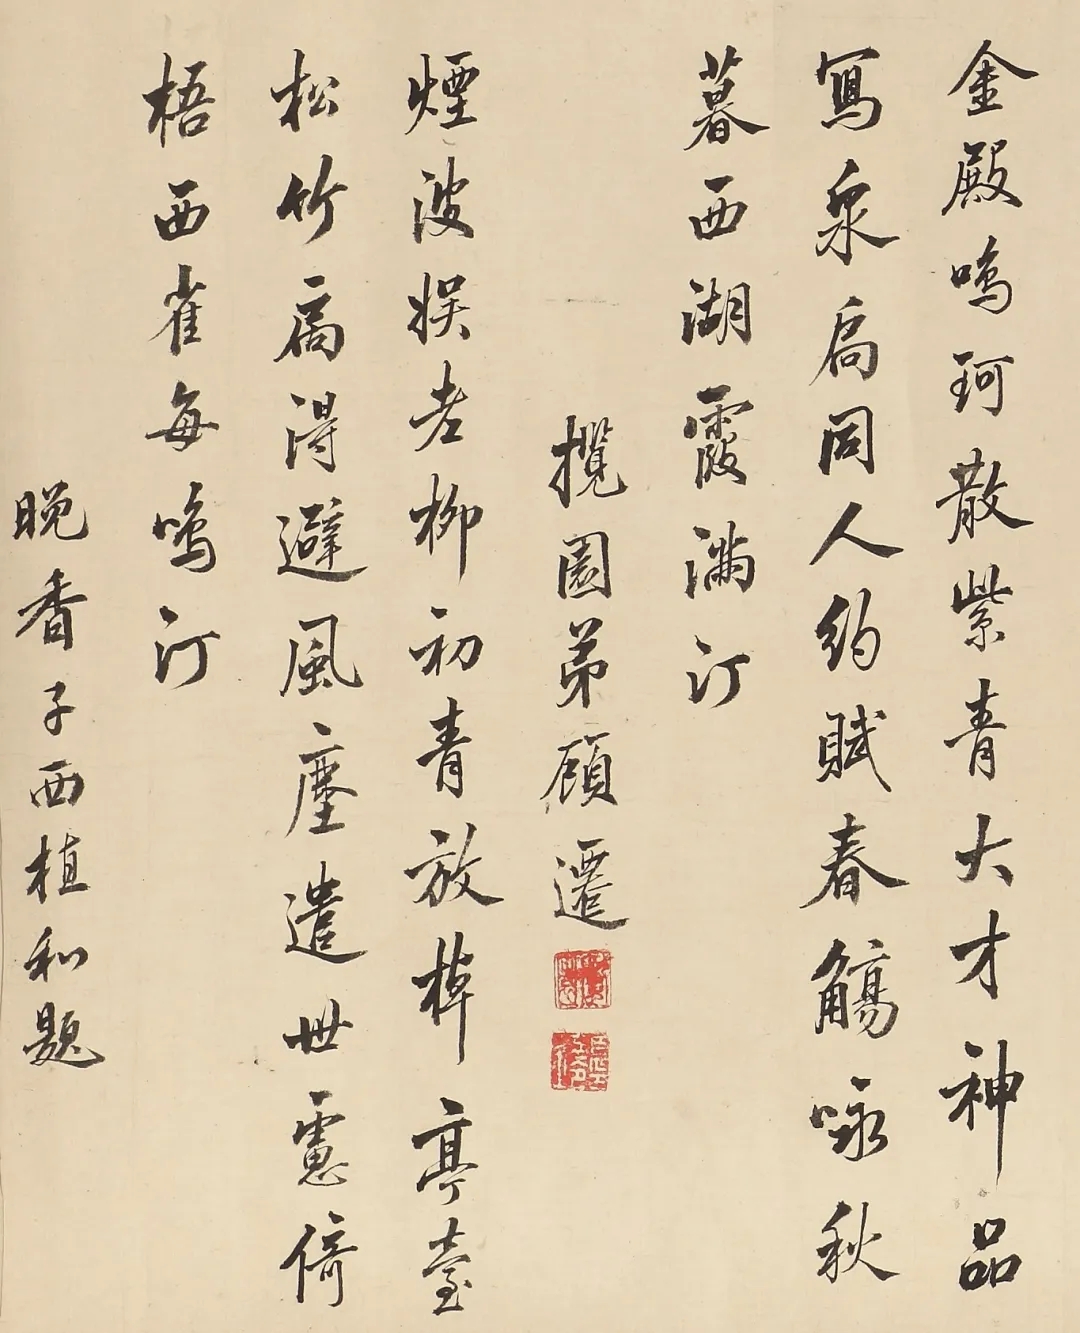 金殿鳴珂散紫青大才神品
寫泉扃同人約賦春觴詠秋
暮西湖霞滿汀
攬園弟顧遷
煙波娛老柳初青放棹亭臺
松竹扃得避風塵遣世慮倚
梧西雀每鳴汀
晚香子西植和題